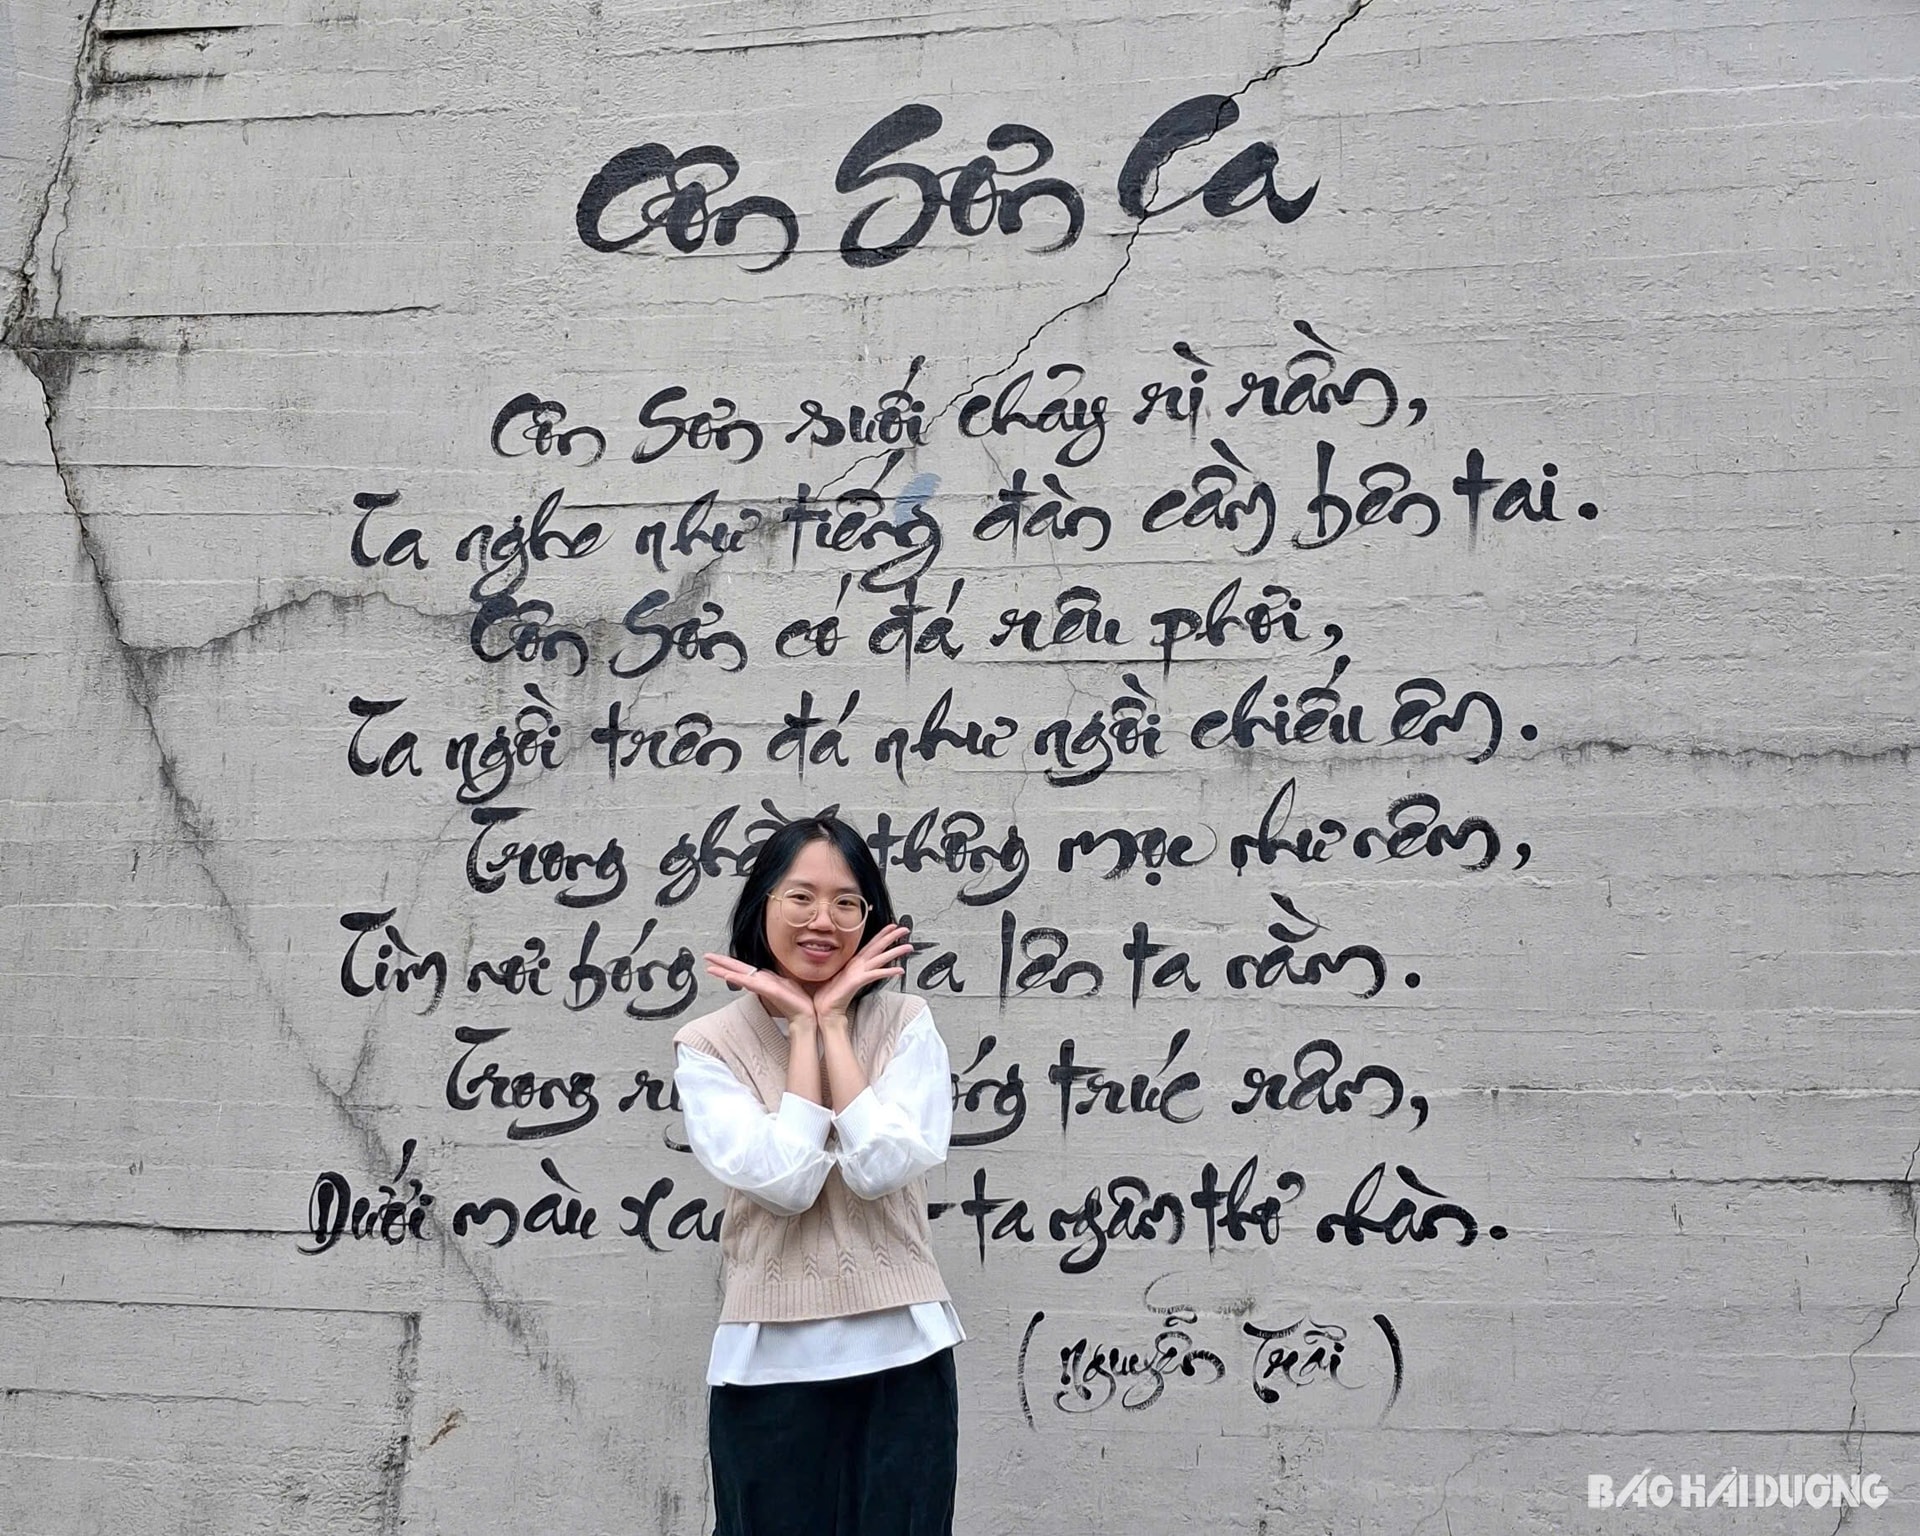 Côn Sơn Ca
Côn Sơn suối chảy rì rầm,
Ta nghe như tiếng đàn cầm bên tai.
Côn Sơn có đá rêu phơi,
Ta ngồi trên đá như ngồi chiếu êm.
Trong thông mọc như nêm,
Tìm nơi bóng ta lên ta nằm.
Trong trúc râm,
Dưới màu ta ngâm thơ nhàn.
(Nguyễn Trãi)
BÁO HẢI DƯƠNG